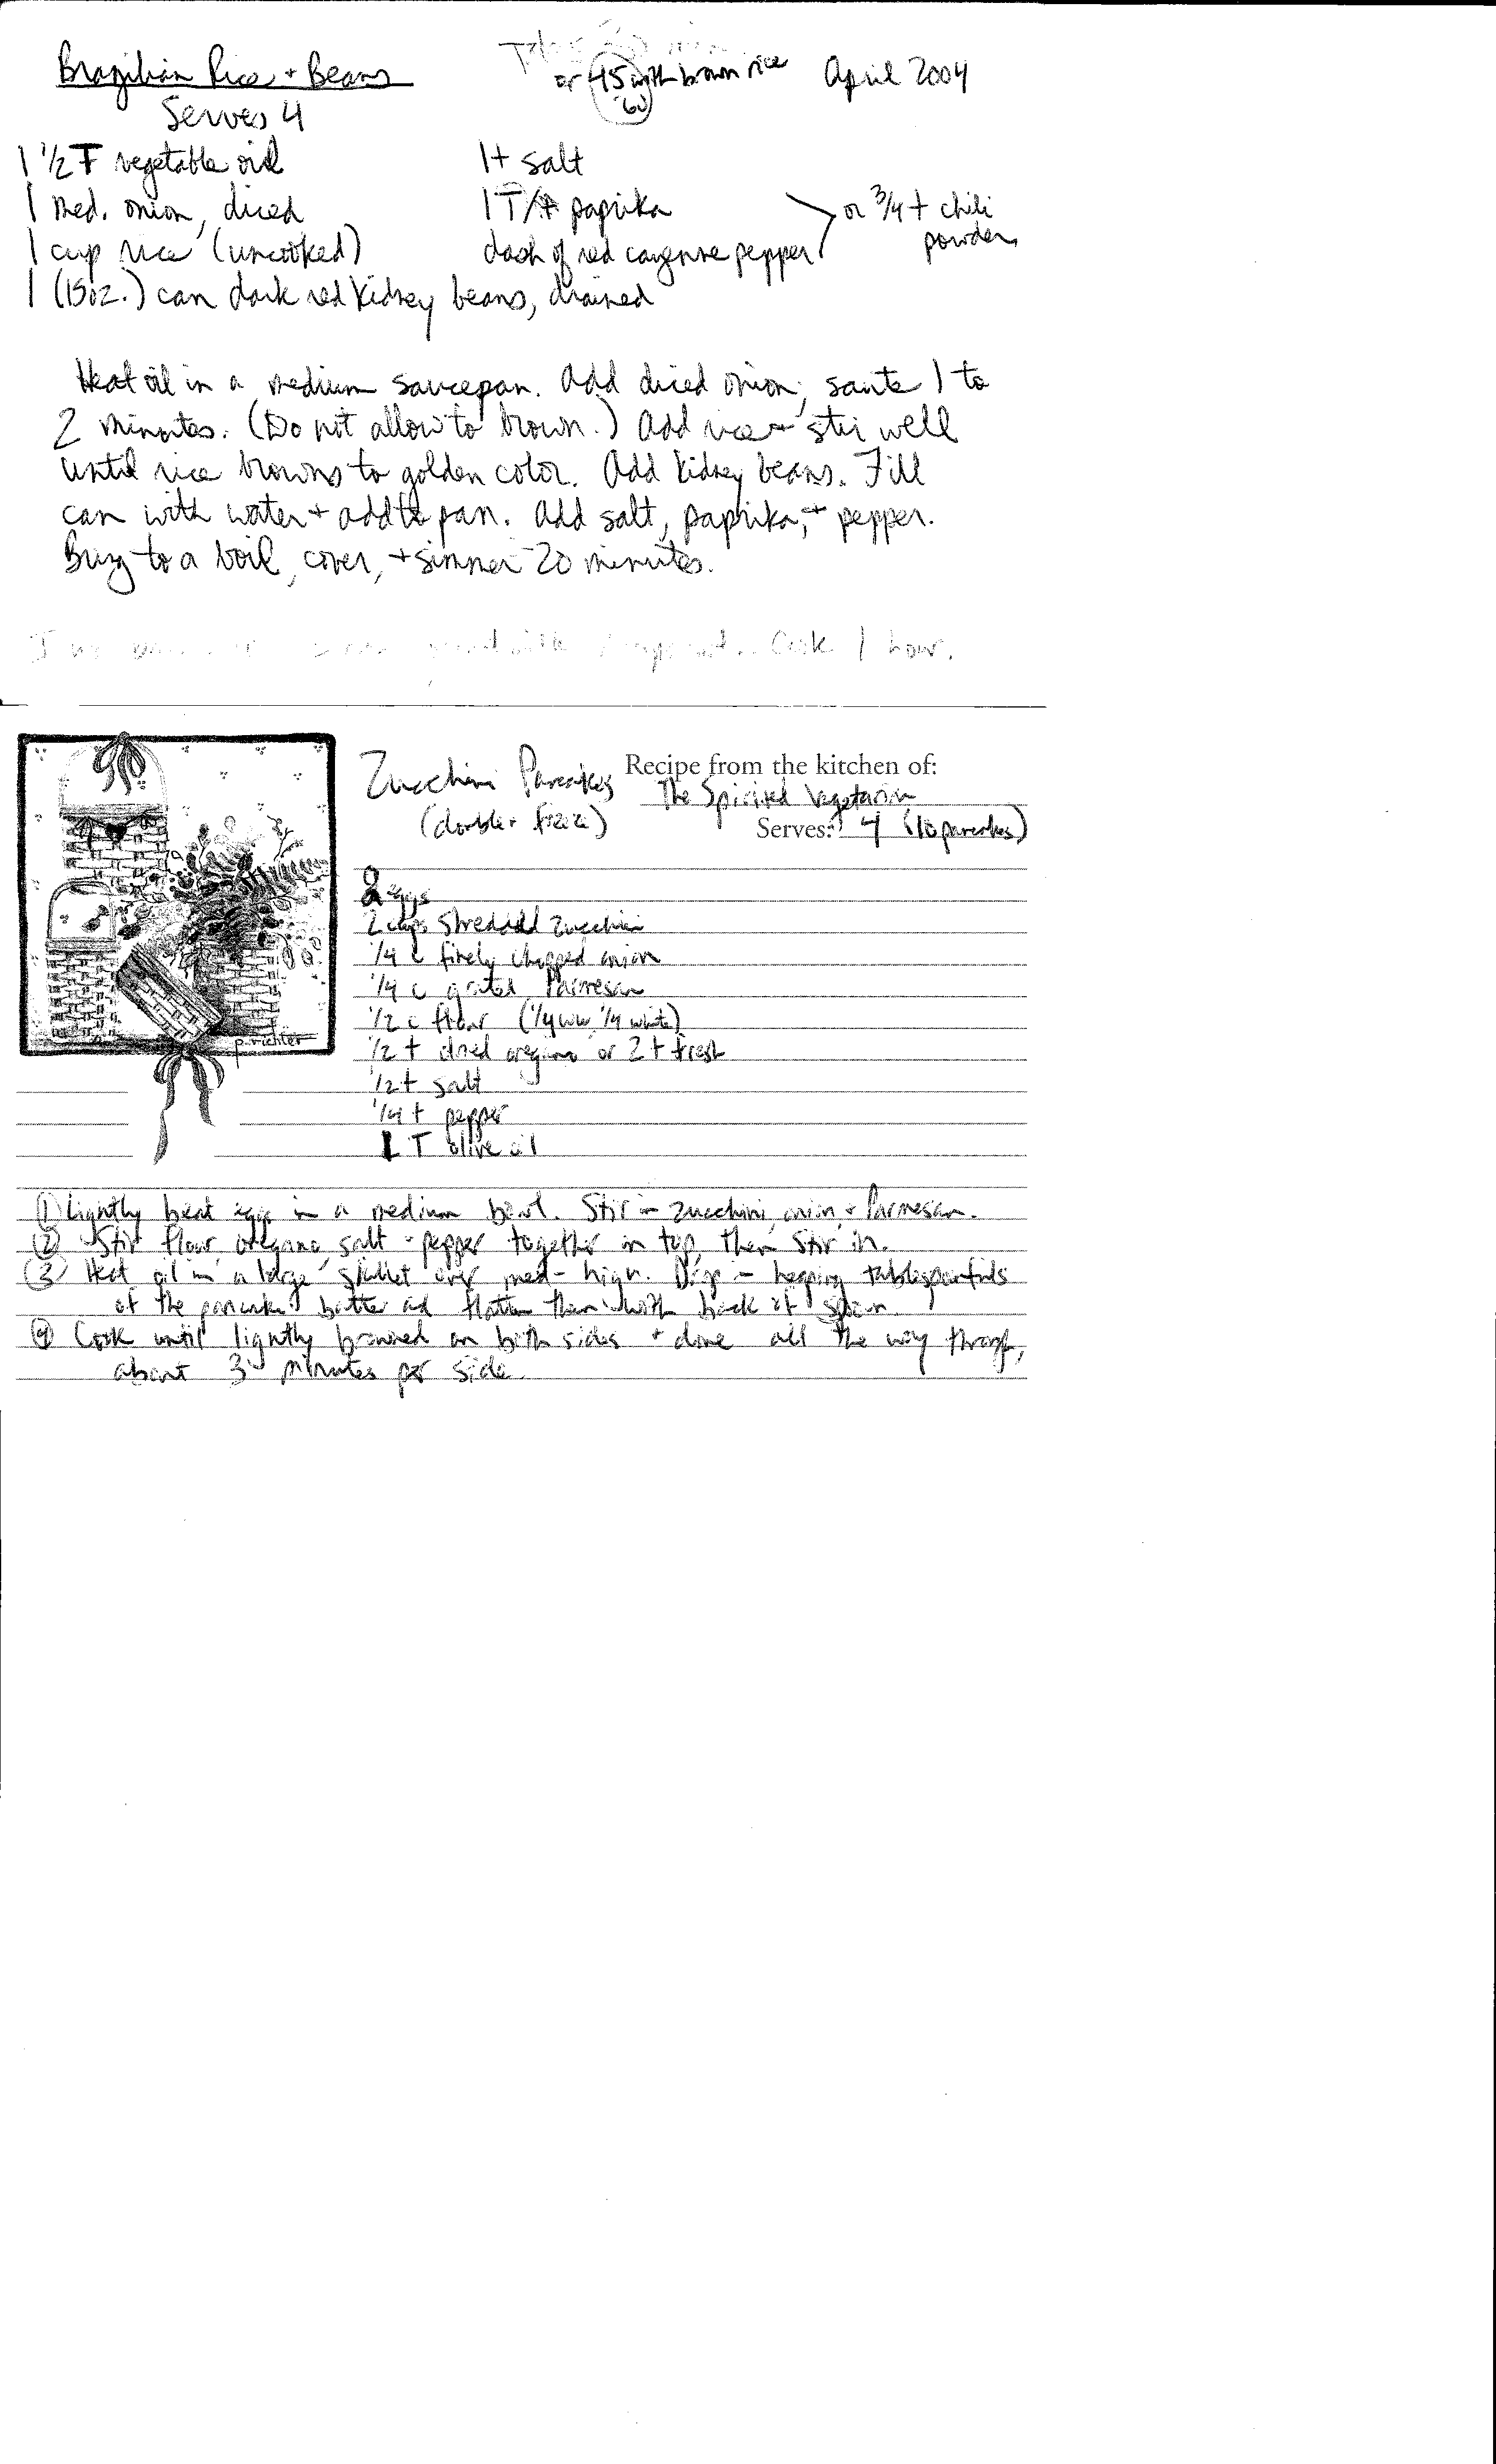 Brazilian Rice + Beans
or 45 with brown rice
60
April 2004
Serves 4
1 1/2 T vegetable oil
1 t salt
1 med. onion, diced
1 T/t paprika
or 3/4 t chili
powder
1 cup rice (uncooked)
dash of red cayenne pepper
1 (15oz.) can dark red kidney beans, drained
Heat oil in a medium saucepan. Add diced onion, saute 1 to
2 minutes. (Do not allow to brown.) Add rice + stir well
until rice browns to golden color. Add kidney beans. Fill
can with water + add to pan. Add salt, paprika, + pepper.
Bring to a boil, cover, + simmer 20 minutes.
Cook 1 hour.
Zucchini Pancakes
Recipe from the kitchen of:
The Spirited Vegetarian
(double + freeze)
Serves: 4 (16 pancakes)
2 eggs
2 cups shredded zucchini
1/4 c finely chopped onion
1/4 c grated Parmesan
1/2 c flour (1/4 ww 1/4 white)
p.richter
1/2 t dried oregano or 2 t fresh
1/2 t salt
1/4 t pepper
1 T olive oil
① Lightly beat eggs in a medium bowl. Stir in zucchini, onion, + Parmesan.
② Stir flour, oregano, salt + pepper together on top, then stir in.
③ Heat oil in a large skillet over med-high. Drop in heaping tablespoonfuls
of the pancake batter and flatten them with back of spoon.
④ Cook until lightly browned on both sides + done all the way through,
about 3 minutes per side.